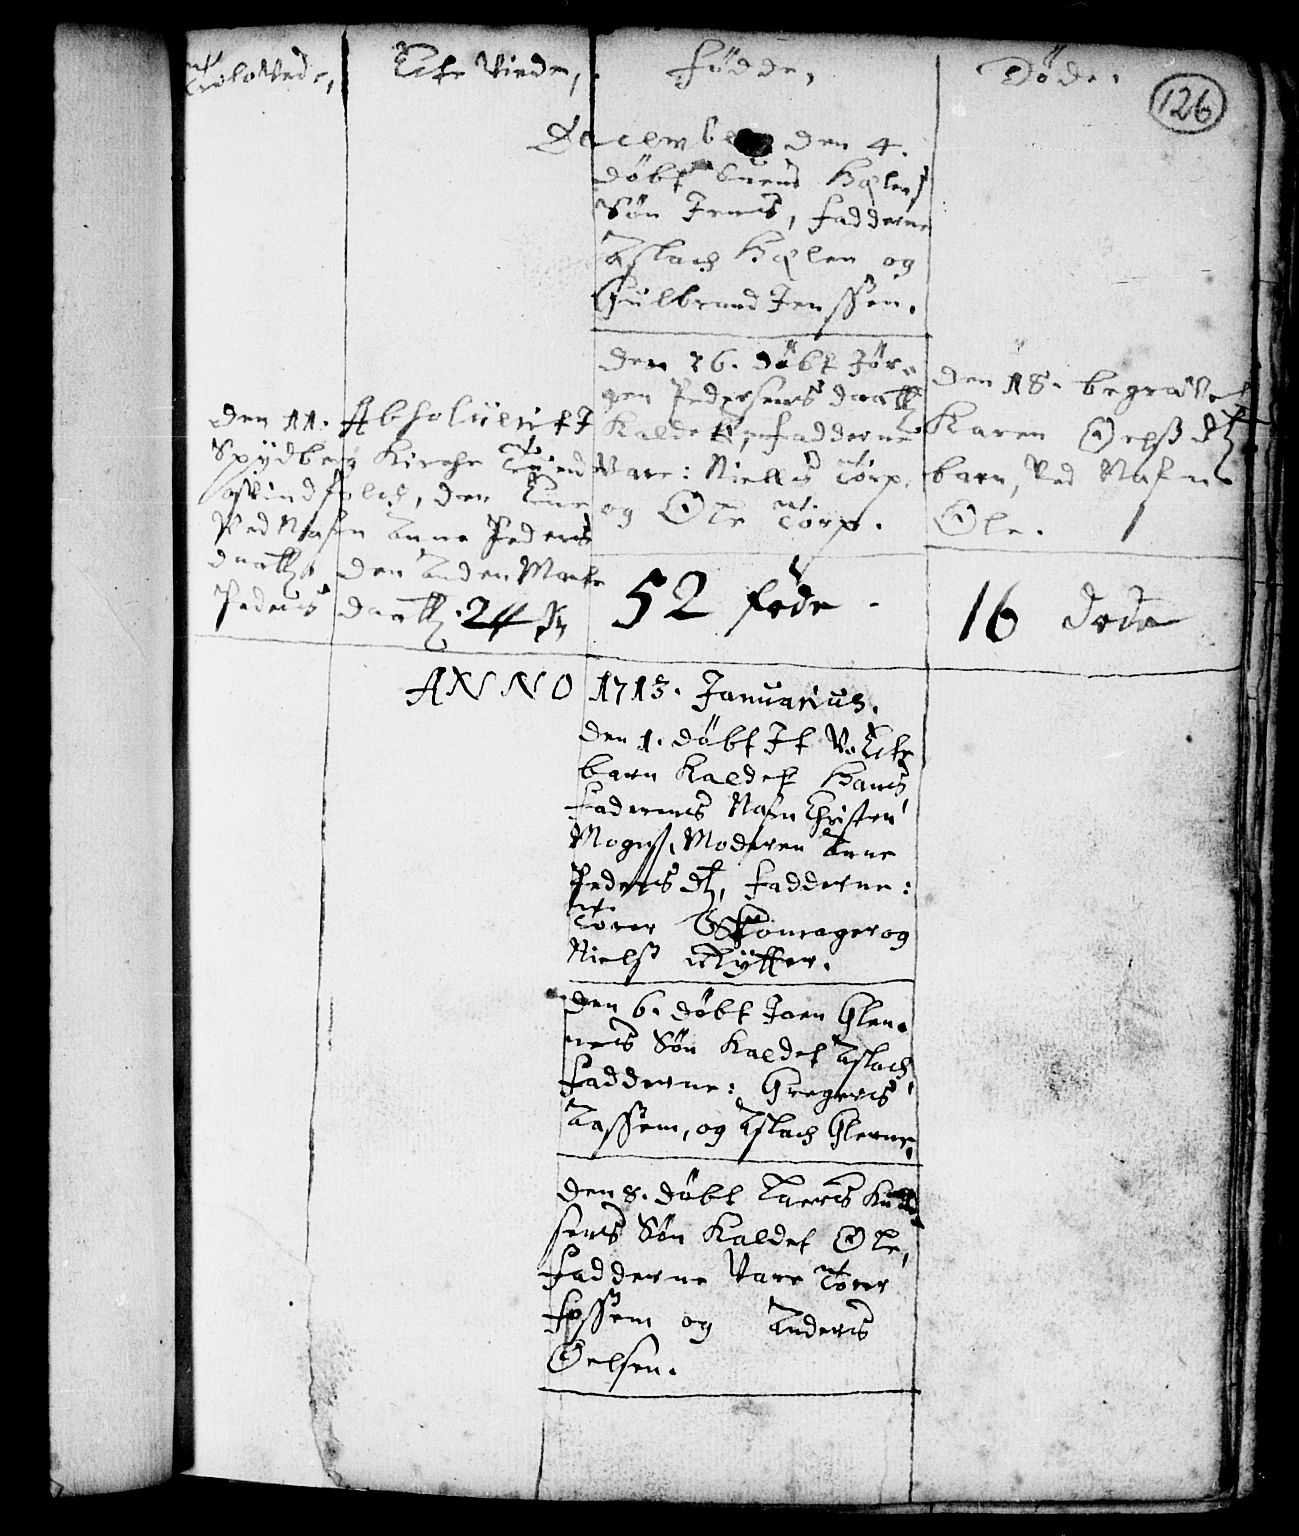 Troloved,
Ecte Viede,
Fødde,
Døde.
126
December den 4.
døbt Suend Hølens
Søn Jens, fadderne
Aslach Hølen og
Gulbrand Jenssøn.
den 26. døbt Jør-
gen Pedersens daatter
Kaldet fadderne
Vare: Niells Torp,
og Ole Torp.
den 18. begravet
Karen Oelss dtr
barn, Ved Nafn
Ole.
den 11. Absoluerit I
Spydberg Kirche Tuend
qvindfolch, den Ene
Ved Nafn Anne Peders
daatter, den Anden Marte
Peders daatter.
52 føde
16 døde
ANNO 1713. Januarius.
den 1. døbt It Uecte
barn Kaldet Hans,
fadernes Nafn Christen
Mogenss, Moderen Anne
Peders dtr, fadderne:
Torer Skomager og
Nielss Rytter.
den 6. døbt Joen Glen-
nes Søn Kaldet Aslach,
fadderne: Gregers
Tassem, og Aslach Glenne.
den 8. døbt Laers Knud
sens Søn Kaldet Ole,
fadderne Vare Torer
Fossem og Anders
Oelsen.